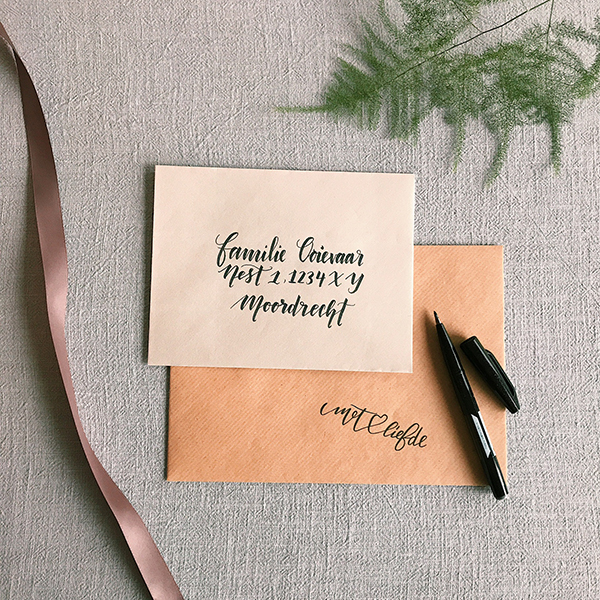 familie Ooievaar
Nest 1, 1234 XY
Moordrecht
met liefde